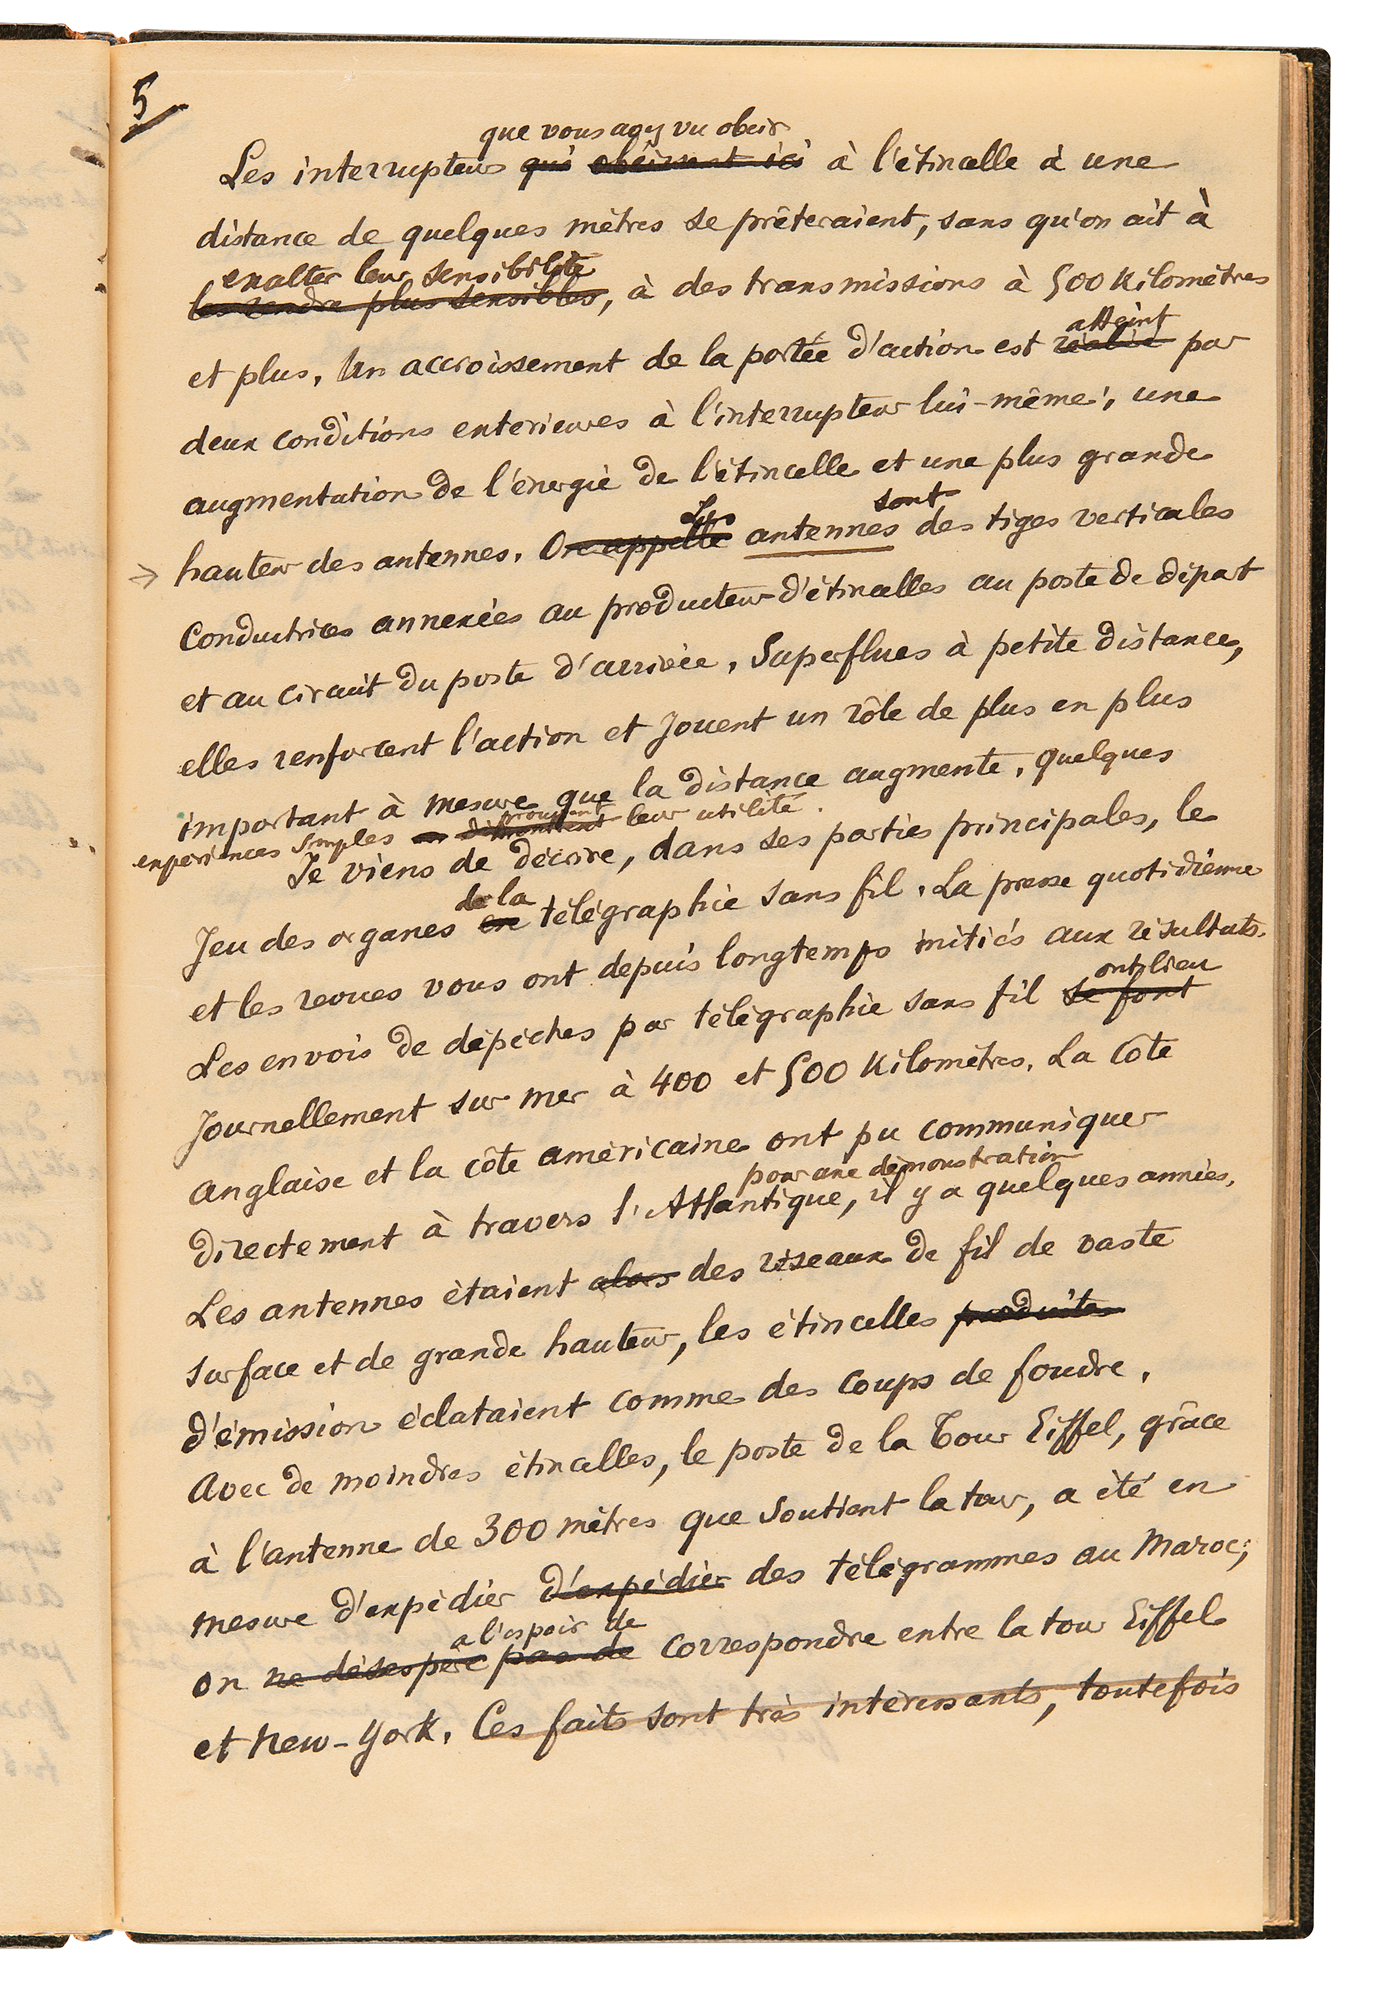 5
que vous avez vu obeir
Les interrupteurs qui obéissent ici à l'étincelle à une
distance de quelques mètres se prêteraient, sans qu'on ait à
exalter leur sensibilité
les rendre plus sensibles, à des transmissions à 500 Kilomètres
atteint
et plus. Un accroissement de la portée d'action est réalisé par
deux conditions exterieures à l'interrupteur lui-même; une
augmentation de l'énergie de l'étincelle et une plus grande
Les sont
hauteur des antennes. On appelle antennes des tiges verticales
conductrices annexées au producteur d'étincelles au poste de départ
et au circuit du poste d'arrivée. Superflues à petite distance,
elles renforcent l'action et jouent un rôle de plus en plus
important à mesure que la distance augmente. quelques
prouvent
experiences simples en démontrent leur utilité.
Je viens de décrire, dans ses parties principales, le
de la
Jeu des organes en télégraphie sans fil. La presse quotidienne
et les revues vous ont depuis longtemps initiés aux résultats.
ont lieu
Les envois de dépêches par télégraphie sans fil se font
Journellement sur mer à 400 et 500 Kilomètres. La Côte
anglaise et la côte américaine ont pu communiquer
pour une démonstration
directement à travers l'Atlantique, il y a quelques années.
Les antennes étaient alors des réseaux de fil de vaste
surface et de grande hauteur, les étincelles produites
d'émission éclataient comme des coups de foudre.
Avec de moindres étincelles, le poste de la Tour Eiffel, grâce
à l'antenne de 300 mètres que soutient la tour, a été en
mesure d'expédier d'expédier des télégrammes au Maroc;
a l'espoir de
on ne désespère pas de correspondre entre la tour Eiffel
et New-York. Ces faits sont très intéressants, toutefois